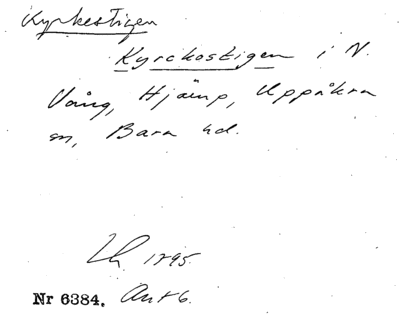 Kyrkestigen
Kyrckostigen i N.
Vång, Hjärup, Uppåkra
sn, Bara hd.
1895.
Nr 6384. Ant 6.